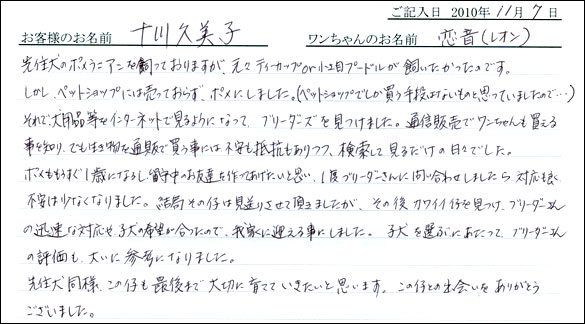 ご記入日 2010年 11月 7日
お客様のお名前 十川久美子 ワンちゃんのお名前 恋音(レオン)
先住犬のポメラニアンを飼っておりますが、元々ティーカップor小さ目プードルが飼いたかったのです。
しかし、ペットショップには売っておらず、ポメにしました。(ペットショップでしか買う手段はないものと思っていましたので…)
それで犬用品等をインターネットで見るようになって、ブリーダーズを見つけました。通信販売でワンちゃんも買える
事を知り、でも生き物を通販で買う事には不安も抵抗もありつつ、検索して見るだけの日々でした。
ポメももうすぐ1歳になるし、留守中のお友達を作ってあげたいと思い、1度ブリーダーさんに問い合わせしましたら対応も良く
不安は少なくなりました。結局その仔は見送りさせて頂きましたが、その後カワイイ仔を見つけ、ブリーダーさん
の迅速な対応や、子犬の希望が合ったので、我家に迎える事にしました。子犬を選ぶにあたって、ブリーダーさん
の評価も、大いに参考になりました。
先住犬同様、この仔も最後まで大切に育てていきたいと思います。この仔との出会いをありがとう
ございました。